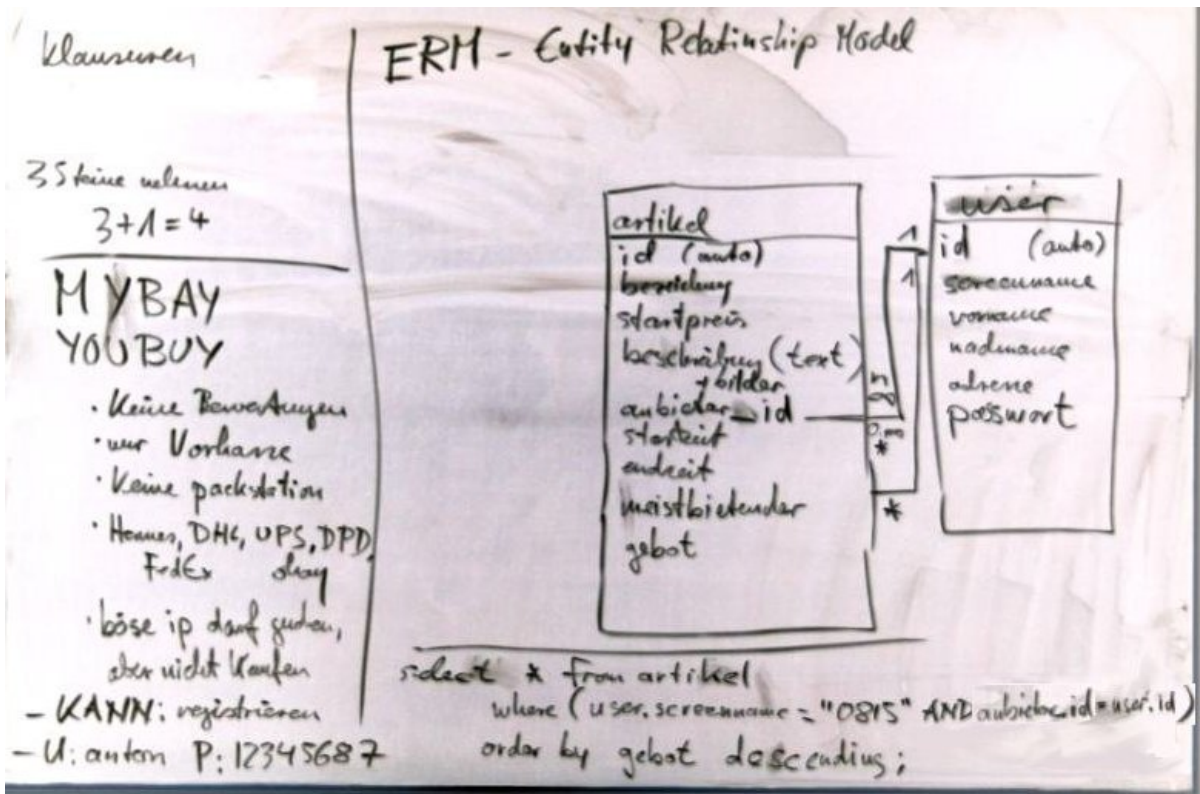 Klausuren
3 Steine nehmen
3+1=4
MYBAY
YOUBUY
· Keine Bewertungen
· nur Vorkasse
· Keine packstation
· Hermes, DHL, UPS, DPD,
FedEx okay
· böse ip darf gucken,
aber nicht Kaufen
- KANN: registrieren
- U: anton P: 12345687
ERM - Entity Relatinship Model
artikel
id (auto)
bezeichnung
startpreis
beschreibung (text)
+ bilder
anbieter_id
startzeit
endzeit
meistbietender
gebot
1
1
*
*
user
id (auto)
screenname
vorname
nachname
adresse
passwort
select * from artikel
where (user.screenname = "0815" AND anbieter_id = user.id)
order by gebot descending;